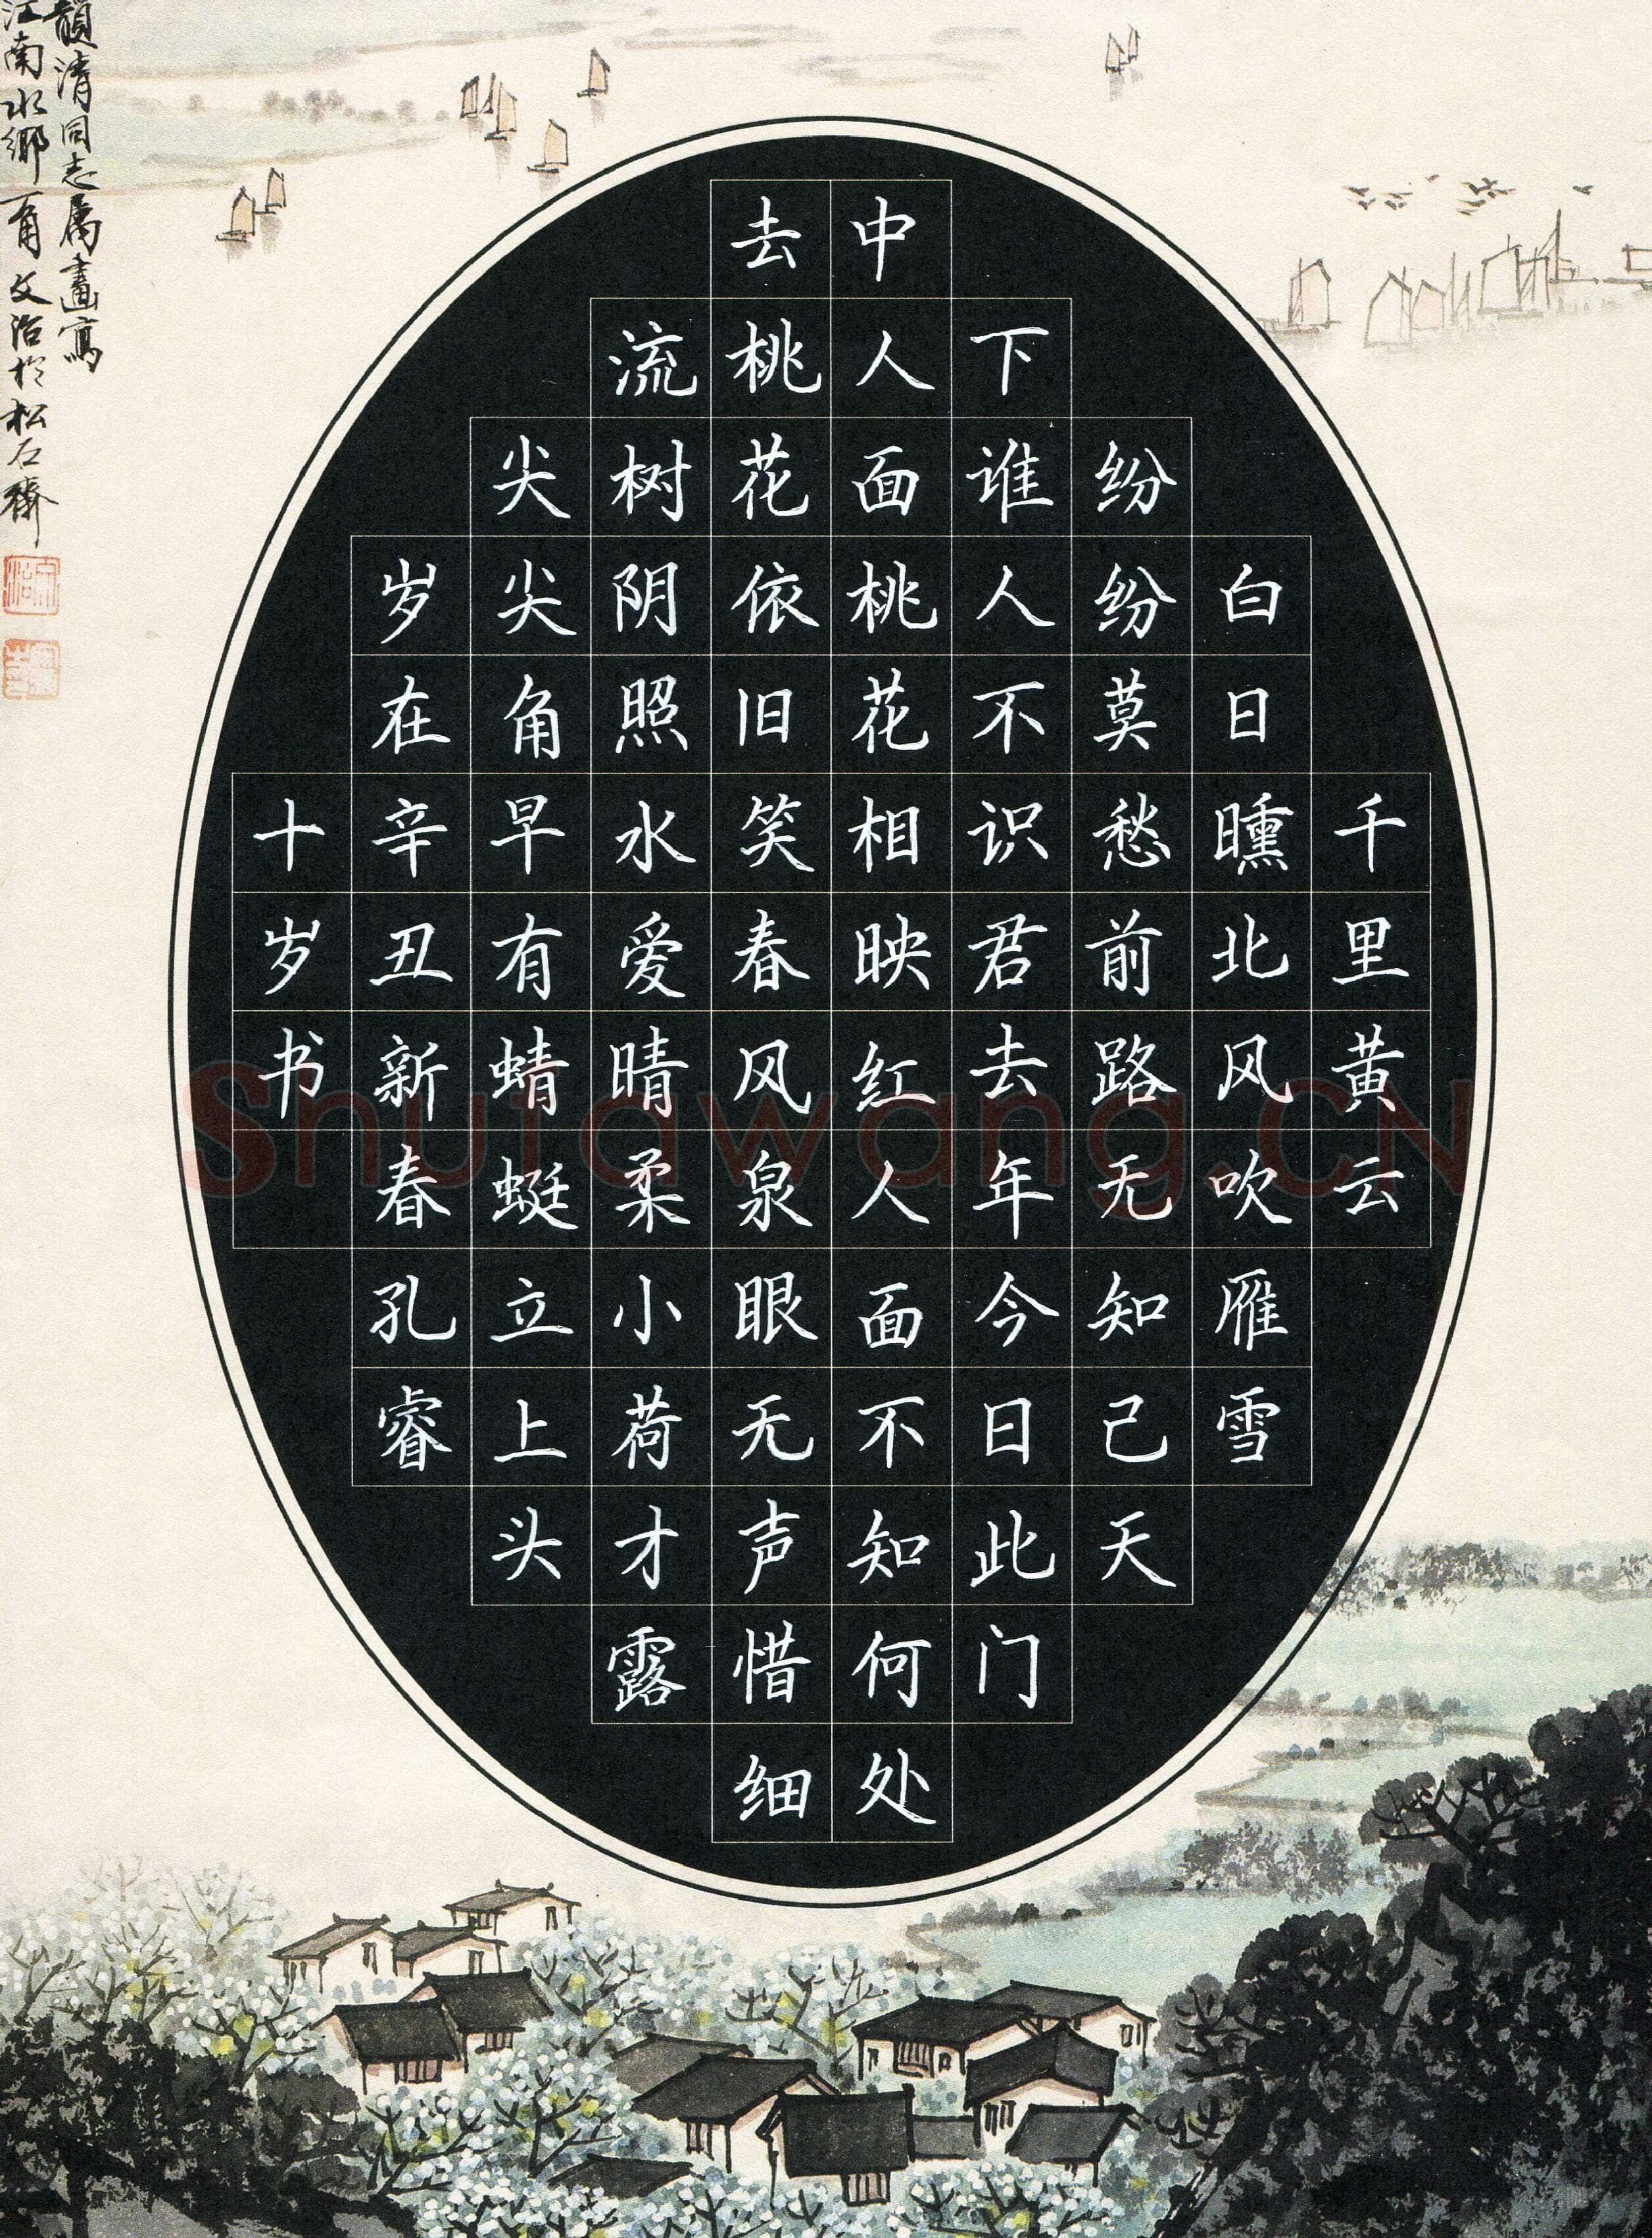 千里黄云
白日曛北风吹雁雪
纷纷莫愁前路无知己天
下谁人不识君去年今日此门
中人面桃花相映红人面不知何处
去桃花依旧笑春风泉眼无声惜细
流树阴照水爱晴柔小荷才露
尖尖角早有蜻蜓立上头
岁在辛丑新春孔睿
十岁书
韻清同志属畫寫
江南水鄉一角文治於松石齋
Shufawang.CN